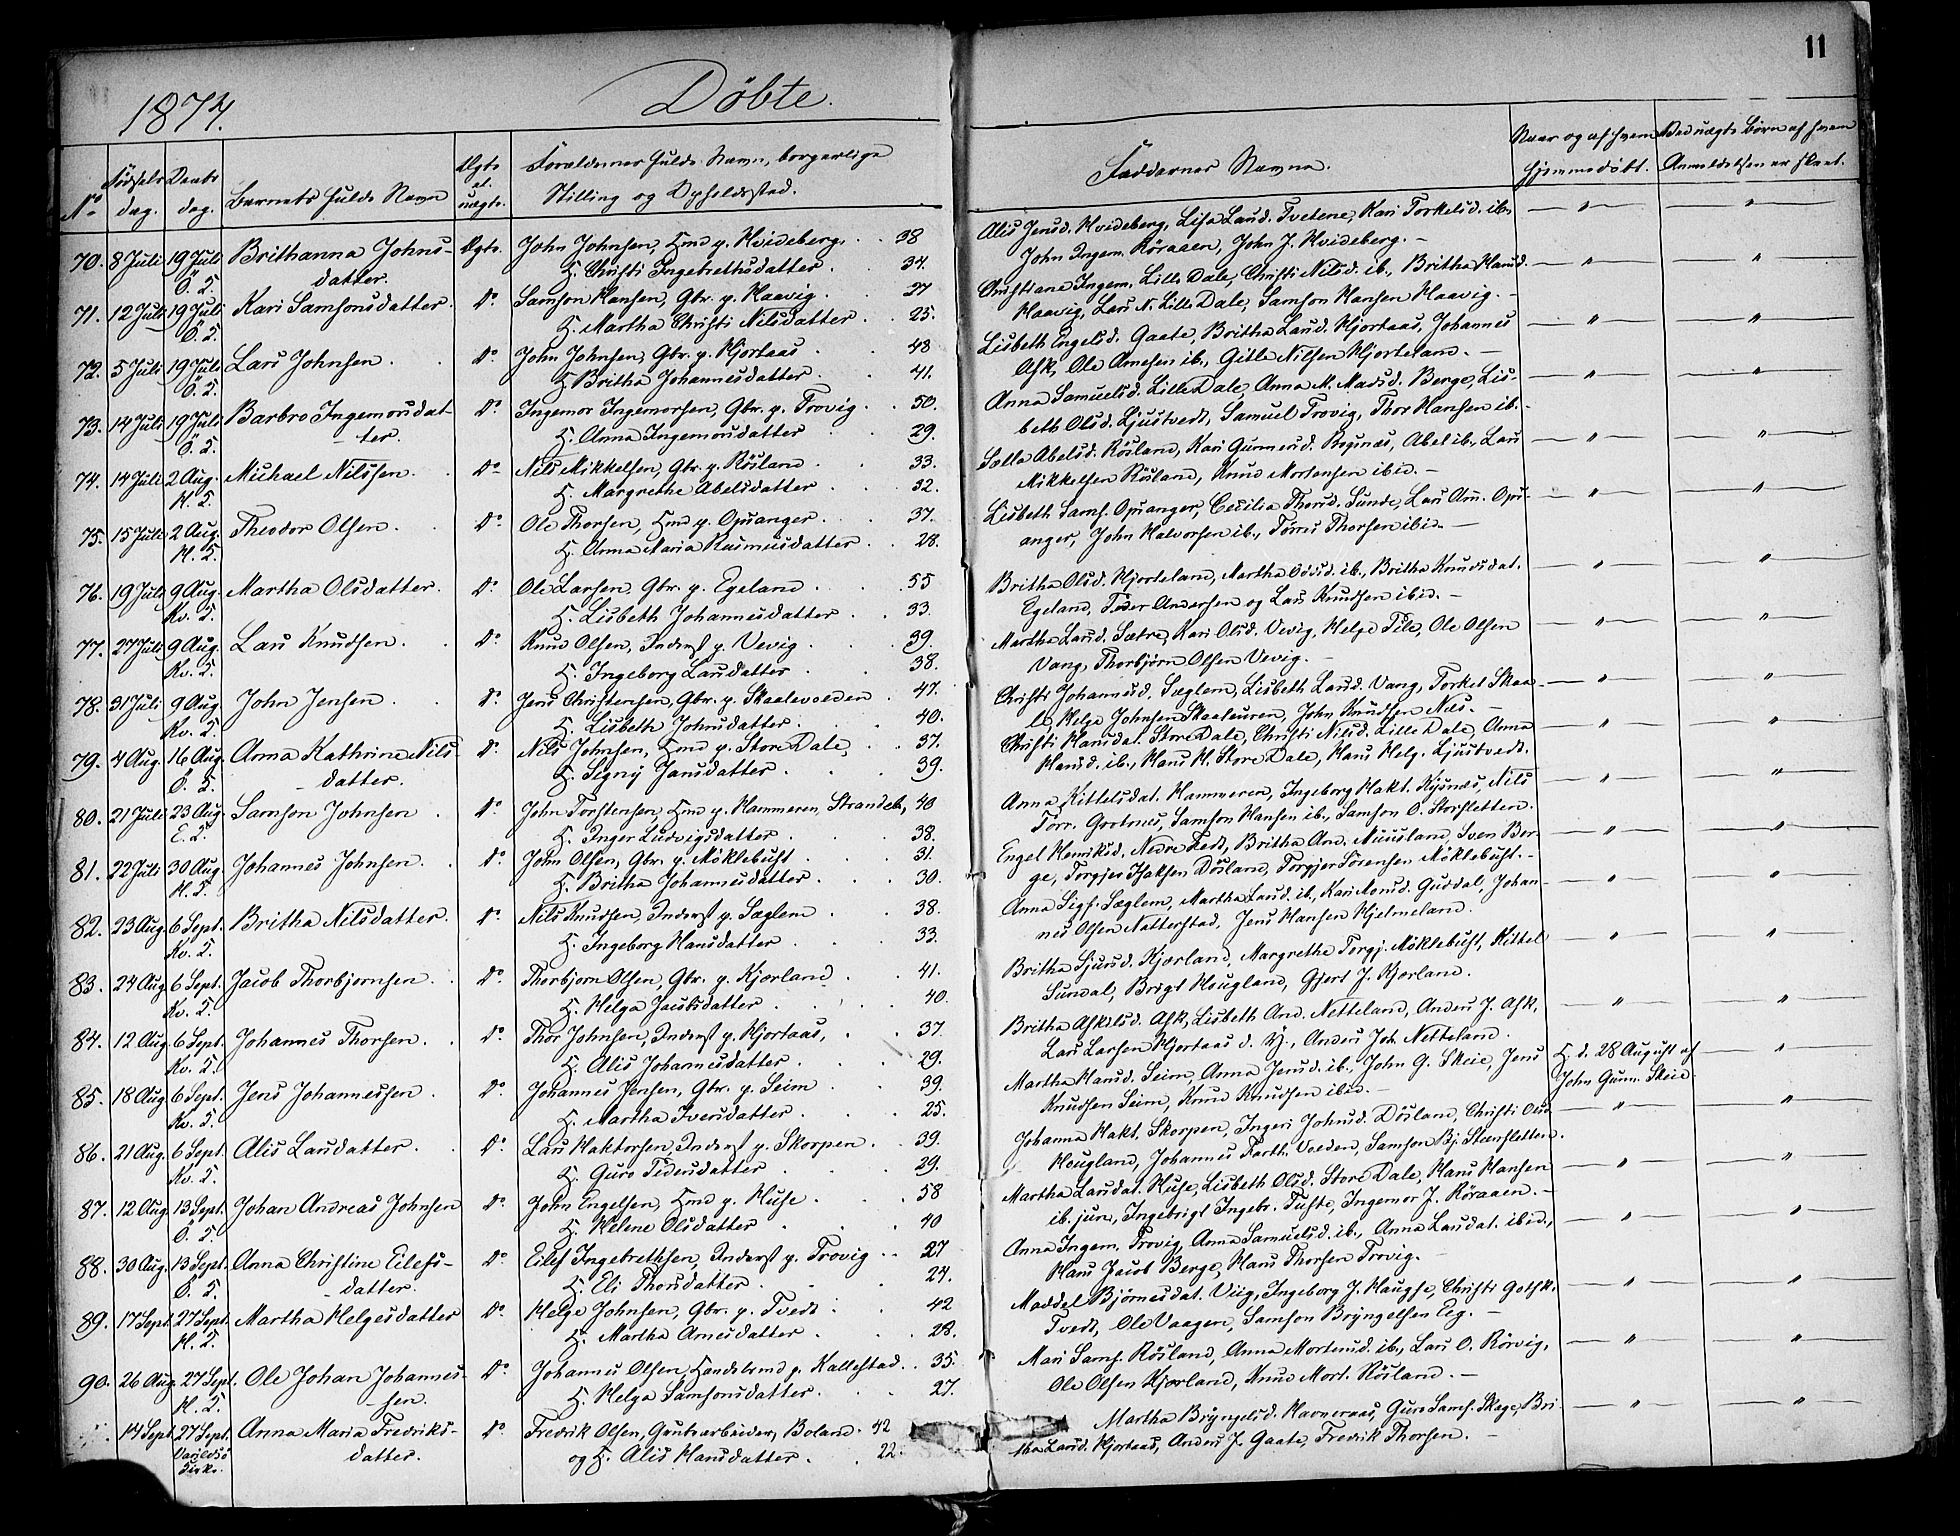 11
1874.
Döbte.
No
Fødsels dag.
Daabs dag.
Barnets fulde Navn
Ægte el. uægte.
Forældrenes fulde Navn, borgerlige Stilling og Opholdssted.
Faddernes Navne.
Naar og af hvem hjemmedöbt.
Ved uægte Børn af hvem Anmeldelsen er skeet.
70. 8 Juli 19 Juli Ö. S. Brithanna Johns- Ægte. John Johnsen, Hmd p. Hvideberg. 38 Alis Jensd. Hvideberg, Lisa Lausd. Tvetene, Kari Torkelsd. ib.
datter. H. Christi Ingebrethsdatter. 34. John Ingem. Röraaen, John J. Hvideberg.
71. 12 Juli 19 Juli Ö. S. Kari Samsonsdatter. Do Samson Hansen, Gbr. p. Haavig. 27 Christiane Ingem. Lille Dale, Christi Nilsd. ib., Britha Hansd.
H. Martha Christi Nilsdatter. 25. Haavig, Lars N. Lille Dale, Samson Hansen Haavig.
72. 5 Juli 19 Juli Ö. S. Lars Johnsen. Do John Johnsen, Gbr. p. Hjortaas 48 Lisbeth Engelsd. Gaate, Britha Lausd. Hjortaas, Johannes
H. Britha Johannesdatter. 41. Ask, Ole Arnesen ib., Gitle Nilsen Hjorteland.
73. 14 Juli 19 Juli Ö. S. Barbro Ingemorsdat- Do Ingemor Ingemorsen, Gbr. p. Trovig. 50. Anna Samuelsd. Lille Dale, Anna M. Madsd. Berge, Lis-
ter. H. Anna Ingemorsdatter 29. beth Olsd. Ljustvedt, Samuel Trovig, Thor Hansen ib.
74. 14 Juli 2 Aug. H. S. Michael Nilssen. Do Nils Mikkelsen, Gbr. p. Rösland. 33. Solla Abelsd. Rösland, Kari Gunnesd. Røgsnæs, Abel ib., Lars
H. Margrethe Abelsdatter 32. Mikkelsen Rösland, Knud Mortensen ibid.
75. 15 Juli 2 Aug. H. S. Theodor Olsen. Do Ole Thorsen, Hmd p. Opsanger. 37. Lisbeth Sams. Opsanger, Cecilia Thorsd. Sunde, Lars Am. Ops-
H. Anna Maria Rasmusdatter. 28. anger, John Halvorsen ib., Törres Thorsen ibid.
76. 19 Juli 9 Aug. Kv. S. Martha Olsdatter. Do Ole Larsen, Gbr. p. Egeland. 55 Britha Olsd. Hjorteland, Martha Oddsd. ib., Britha Knudsdat.
H. Lisbeth Johannesdatter. 33. Egeland, Peder Andersen og Lars Knudsen ibid.
77. 27 Juli 9 Aug. Kv. S. Lars Knudsen. Do Knud Olsen, Inderst p. Vevig 39. Martha Lausd. Sætre, Kari Olsd. Vevig, Helge Tile, Ole Olsen
H. Ingeborg Larsdatter 38. Vang, Thorbjörn Olsen Vevig.
78. 31 Juli 9 Aug Kv. S. John Jensen. Do Jens Christensen, Gbr. p. Skaalevolden. 47. Christi Johannesd. Sæglem, Lisbeth Lausd. Vang, Torkel Skaa-
H. Lisbeth Johnsdatter. 40. le, Helge Johnsen Skaaleuren, John Knudsen Næs.
79. 4 Aug. 16 Aug. Ö. S. Anna Kathrine Nils- Do Nils Johnsen, Hmd p. Store Dale, 37. Christi Hansdat. Store Dale, Christi Nilsd. Lille Dale, Anna
datter. H. Signÿ Jansdatter. 39. Hansd. ib., Hans H. Store Dale, Hans Helg. Ljustvedt.
80. 21 Juli 23 Aug. E. S. Samson Johnsen Do John Torstensen, Hmd p. Hammeren, Strandeb., 40 Anna Kittelsdat. Hammeren, Ingeborg Hakt. Kysnæs, Nils
H. Inger Ludvigsdatter 38. Torr. Grotnes, Samson Hansen ib., Samson O. Storsletten.
81. 22 Juli 30 Aug. H. S. Johannes Johnsen. Do John Olsen, Gbr. p. Möklebust. 31. Engel Henriksd. Nedre Tedt, Britha And. Nuusland, Sven Ber-
H. Britha Johannesdatter. 30. ge, Torgjer Isaksen Dösland, Torgjer Sörensen Möklebust.
82. 23 Aug 6 Sept. Kv. S. Britha Nilsdatter. Do Nils Knudsen, Inderst p. Sæglem 38. Anna Sigf. Sæglem, Martha Lausd. ib., Kari Monsd. Guddal, Johan-
H. Ingeborg Hansdatter 33. nes Olsen Natterstad, Jens Hansen Hjelmeland.
83. 24 Aug 6 Sept. Kv. S. Jacob Thorbjornsen. Do Thorbjorn Olsen, Gbr. p. Kjærland 41. Britha Sjursd. Kjærland, Margrethe Torgj. Möklebust, Kittel
H. Helga Jacobsdatter 40. Sundal, Brigt Hougland, Gjert J. Kjærland.
84. 12 Aug. 6 Sept. Kv. S. Johannes Thorsen. Do Thor Johnsen, Inderst p. Hjortaas, 37. Britha Askelsd. Ask, Lisbeth And. Netteland, Anders J. Ask,
H. Alis Johannesdatter. 29. Lars Larsen Hjortaas d. Y., Anders Joh. Netteland.
85. 18 Aug 6 Sept. Kv. S. Jens Johannessen Do Johannes Jensen, Gbr. p. Seim 39. Martha Hansd. Seim, Anna Jensd. ib., John G. Skeie, Jens H. d. 28 August af
H. Martha Iversdatter 25. Knudsen Seim, Knud Knudsen ibid. John Gunn. Skeie
86. 21 Aug. 6 Sept. Kv. S. Alis Larsdatter. Do Lars Haktorsen, Inderst p. Skorpen. 39. Johanna Hakt. Skorpen, Ingeri Johnsd. Dösland, Christi Olsd.
H. Guro Pedersdatter 29. Hougland, Johannes Parth. Voldend, Samson Bj. Storsletten.
87. 12 Aug 13 Sept. Ö. S. Johan Andreas Johnsen Do John Engelsen, Hmd p. Huse. 58 Martha Larsdat. Huse, Lisbeth Olsd. Store Dale, Hans Hansen
H. Helene Olsdatter 40 ib. jun., Ingebrigt Ingebr. Tufte, Ingemor J. Röraaen.
88. 30 Aug. 13 Sept. Ö. S. Anna Christine Eilefs- Do Eilef Ingebrethsen, Inderst p. Trovig. 27 Anna Ingem. Trovig, Anna Samuelsd. ib., Anna Larsdat. ibid.,
datter. H. Eli Thorsdatter. 24. Hans Jacob Berge, Hans Thorsen Trovig.
89. 17 Sept. 27 Sept. H. S. Martha Helgesdatter Do Helge Johnsen, Gbr. p. Tvedt 42 Maddel Björnesdat. Viig, Ingeborg J. Haugse, Christi Gotsk.
H. Martha Arnesdatter. 28. Tvedt, Ole Vaagen, Samson Bryngelsen Eeg.
90. 26 Aug. 27 Sept. H. S. Ole Johan Johannes- Do Johannes Olsen, Handelsmd p. Kallestad. 35. Mari Sams. Rösland, Anna Mortensd. ib., Lars O. Rörvig,
sen. H. Helga Samsonsdatter. 27. Ole Olsen Kjærland, Knud Mort. Rösland.
14 Sept. 27 Sept. Varildsö Kirke. Anna Maria Fredriks- Do Fredrik Olsen, Grubearbeider, Boland. 42 Martha Bryngelsd. Havneraas, Guro Sams. Skege, Bri-
datter. og H. Alis Hansdatter. 22. tha Lausd. Hjortaas, Anders J. Gaate, Fredrik Thorsen.